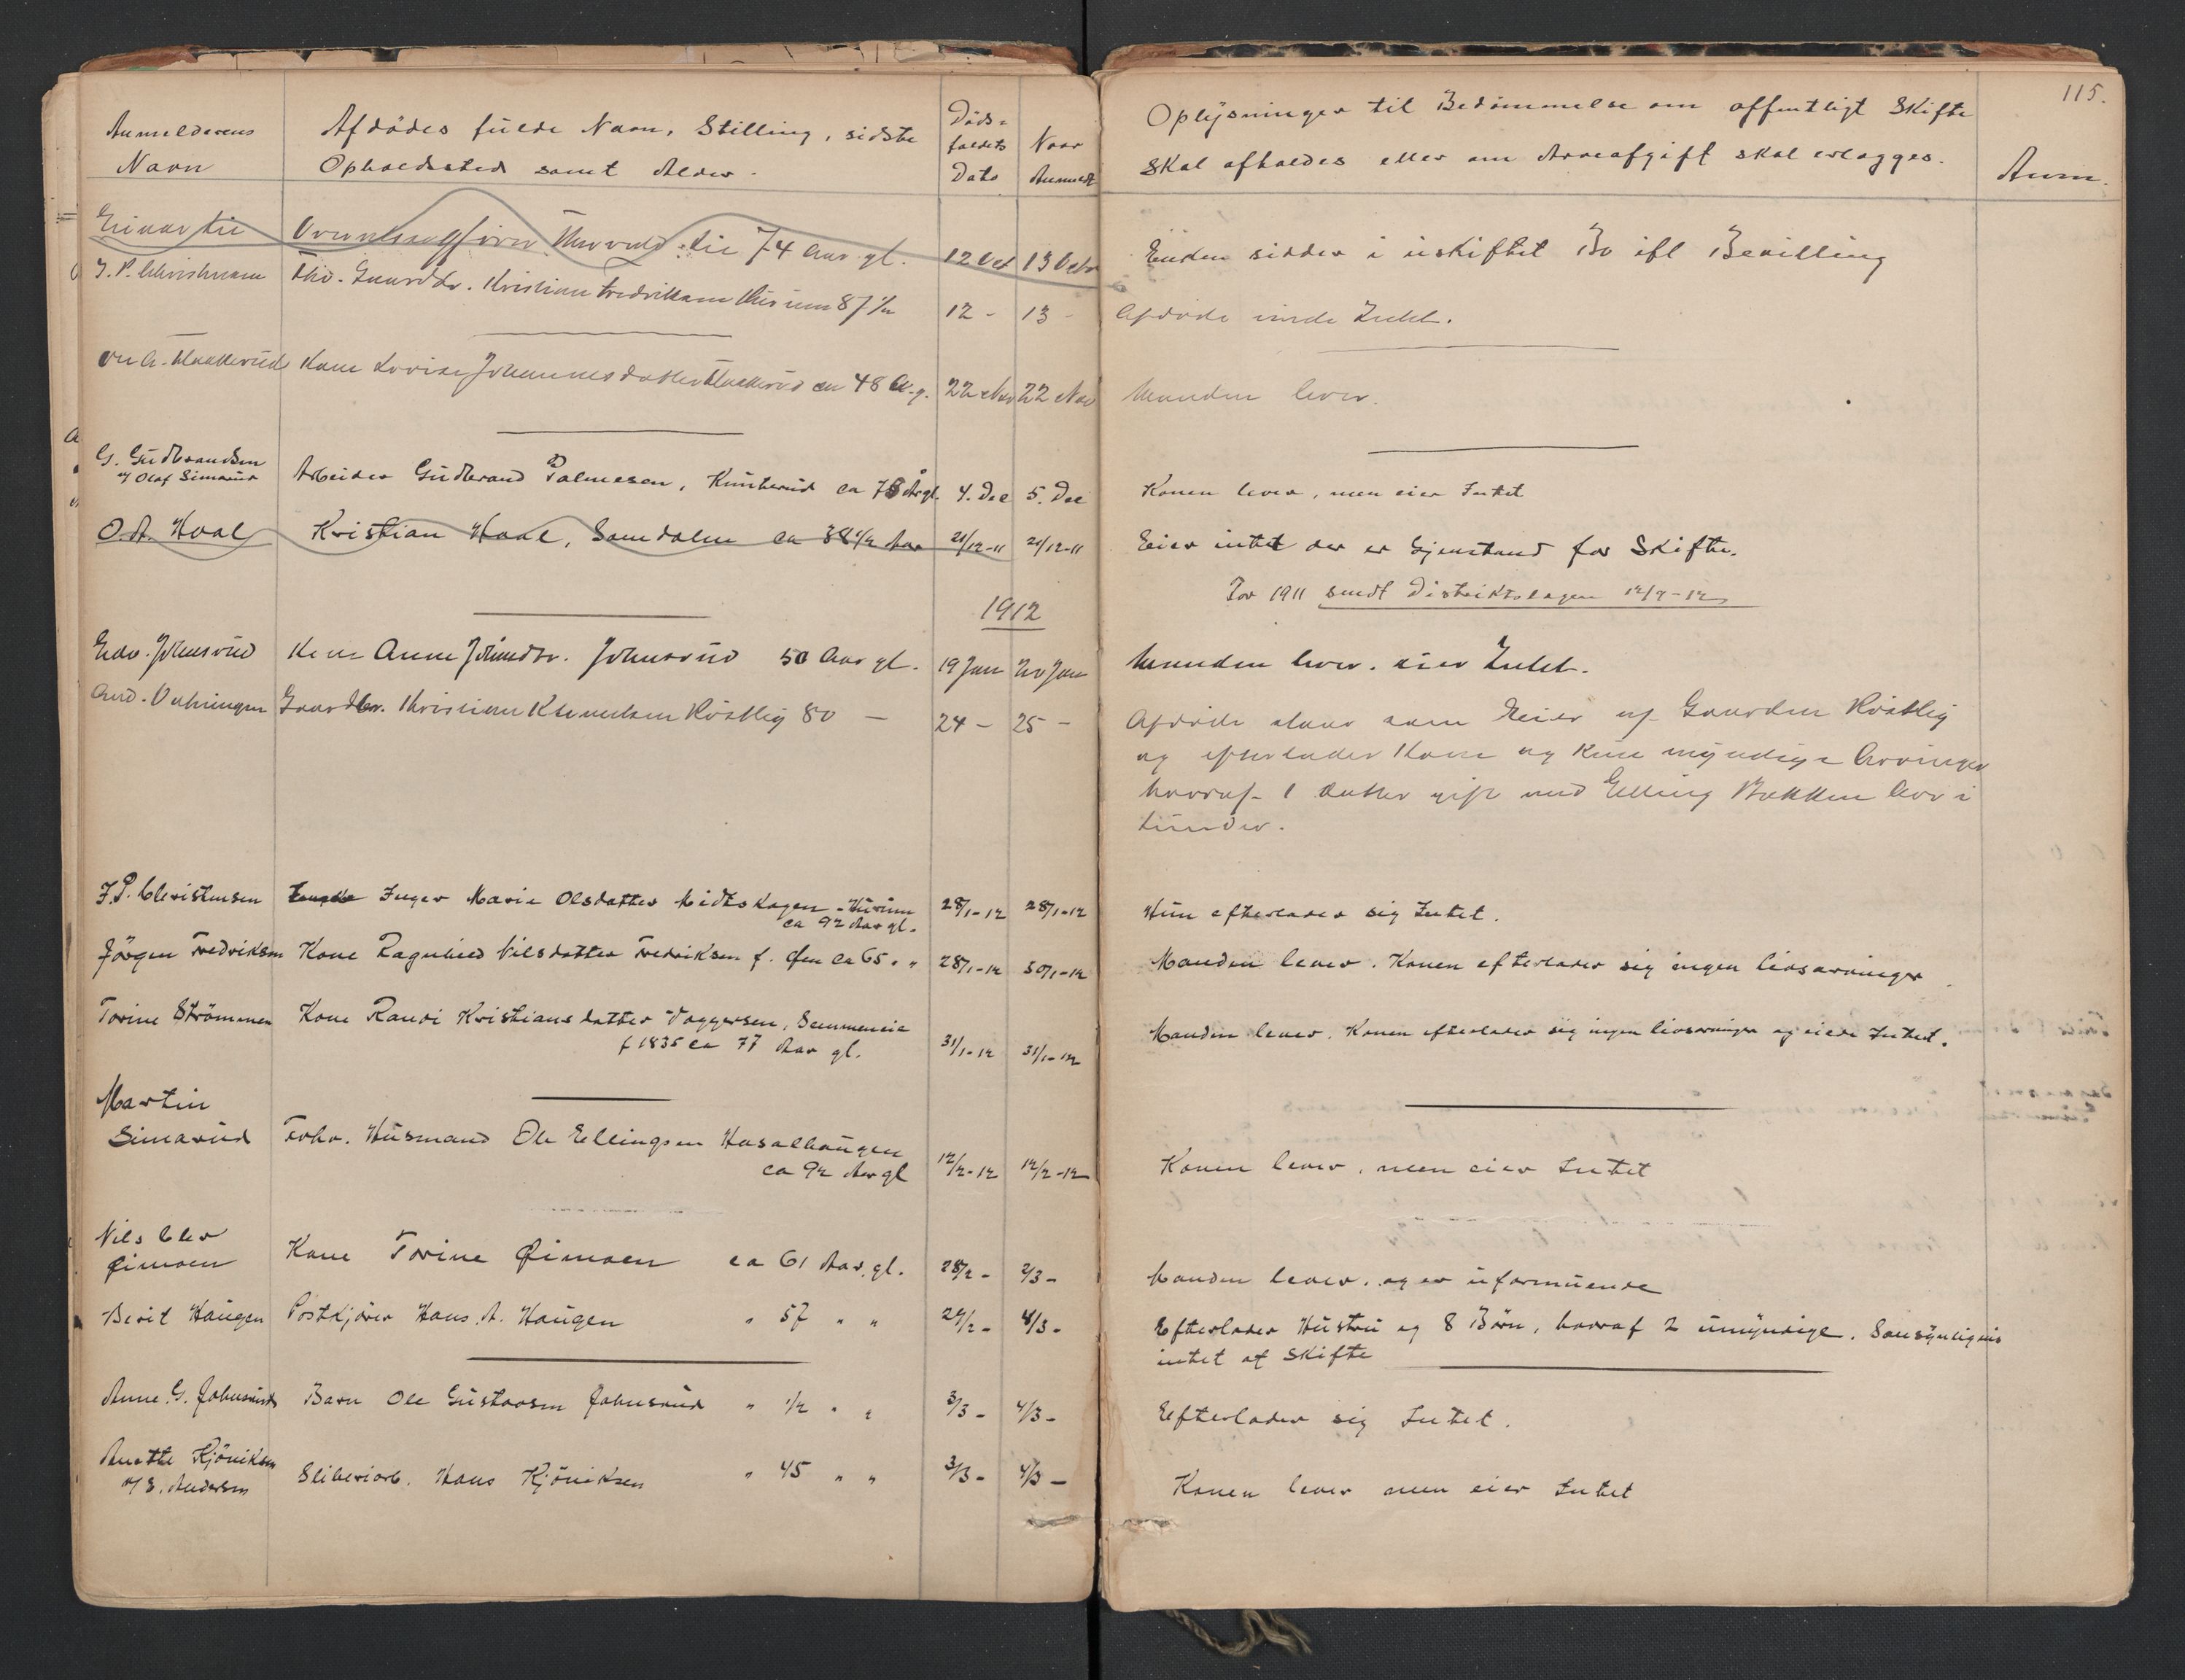 115.
Anmelderens Navn
Afdødes fulde Navn, Stilling, sidste
Opholdssted samt Alder.
Døds=
faldets
Dato
Naar
Anmeldt
Oplysninger til Bedømmelse om offentligt Skifte
skal afholdes eller om Arveafgift skal erlægges.
Anm.
Einar Lie Lie 74 Aar gl. 12 Oct 13 Octr Enken sidder i uskiftet Bo ifl Bevilling
J. P. Christensen Fhv. Gaardbr. Kristian Fredriksen Husum 87 1/2 12 - 13 - Afdøde eiede Intet.
Kone Lovise Johannesdatter ca 48 A. g. 22 Nov 22 Nov Manden lever.
G. Gudbrandsen
v/ Olaf Simarud
Arbeider Gudbrand Palmesen, Kunterud ca 78 År gl. 4. Dec 5. Dec Konen lever, men eier Intet
O. A. Hoal Kristian Hoal, Sandalen ca 38 1/2 Aar 21/12-11 21/12-11 Eier intet der er Gjenstand for Skifte.
For 1911 sendt Distriktslægen 12/9-12
1912
Edv. Johnsrud Kone Anne Johnsdtr. Johnsrud 50 Aar gl. 19 Jan 20 Jan Manden lever. eier Intet.
And. Gaardbr. Kristian Knudsen Røstlig 80 — 24 - 25 - Afdøde staar som Eier af Gaarden Røstlig
og efterlader Kone og kun myndige Arvinger
hvoraf 1 datter gift med Elling Bakken bor i
J. P. Christensen Inger Marie Olsdatter Midtskogen - Husum
ca 92 Aar gl.
28/1-12 28/1-12 Hun efterlader sig Intet.
Jørgen Fredriksen Kone Ragnhild Nilsdatter Fredriksen f. Øen ca 65 " " 28/1-12 30/1-12 Manden lever. Konen efterlader sig ingen livsarvinger
Torine Strömmen Kone Randi Kristiansdatter
f 1835 ca 77 Aar gl.
31/1-12 31/1-12 Manden lever. Konen efterlader sig ingen livsarvinger og eiede Intet.
Martin
Simarud
Forhv. Husmand Ole Ellingsen
ca 92 Aar gl
12/2-12 12/2-12 Konen lever, men eier Intet
Nils Chr
Øimoen
Kone Torine Øimoen ca 61 Aar gl. 28/2 - 2/3 - Manden lever. og er uformuende
Berit Haugen Postkjører Hans A. Haugen " 57 " " 29/2 - 4/3 - Efterlader Hustru og 8 Børn, hvoraf 2 umyndige. Sansynligvis
intet af Skifte
Anne G. Johnsrud Barn Ole Gustavsen Johnsrud " 1/2 " " 3/3 - 4/3 - Efterlader sig Intet.
Anette Kjöniksen
v/ E. Andersen
Sliberiarb. Hans Kjöniksen " 45 " " 3/3 - 4/3 - Konen lever men eier Intet